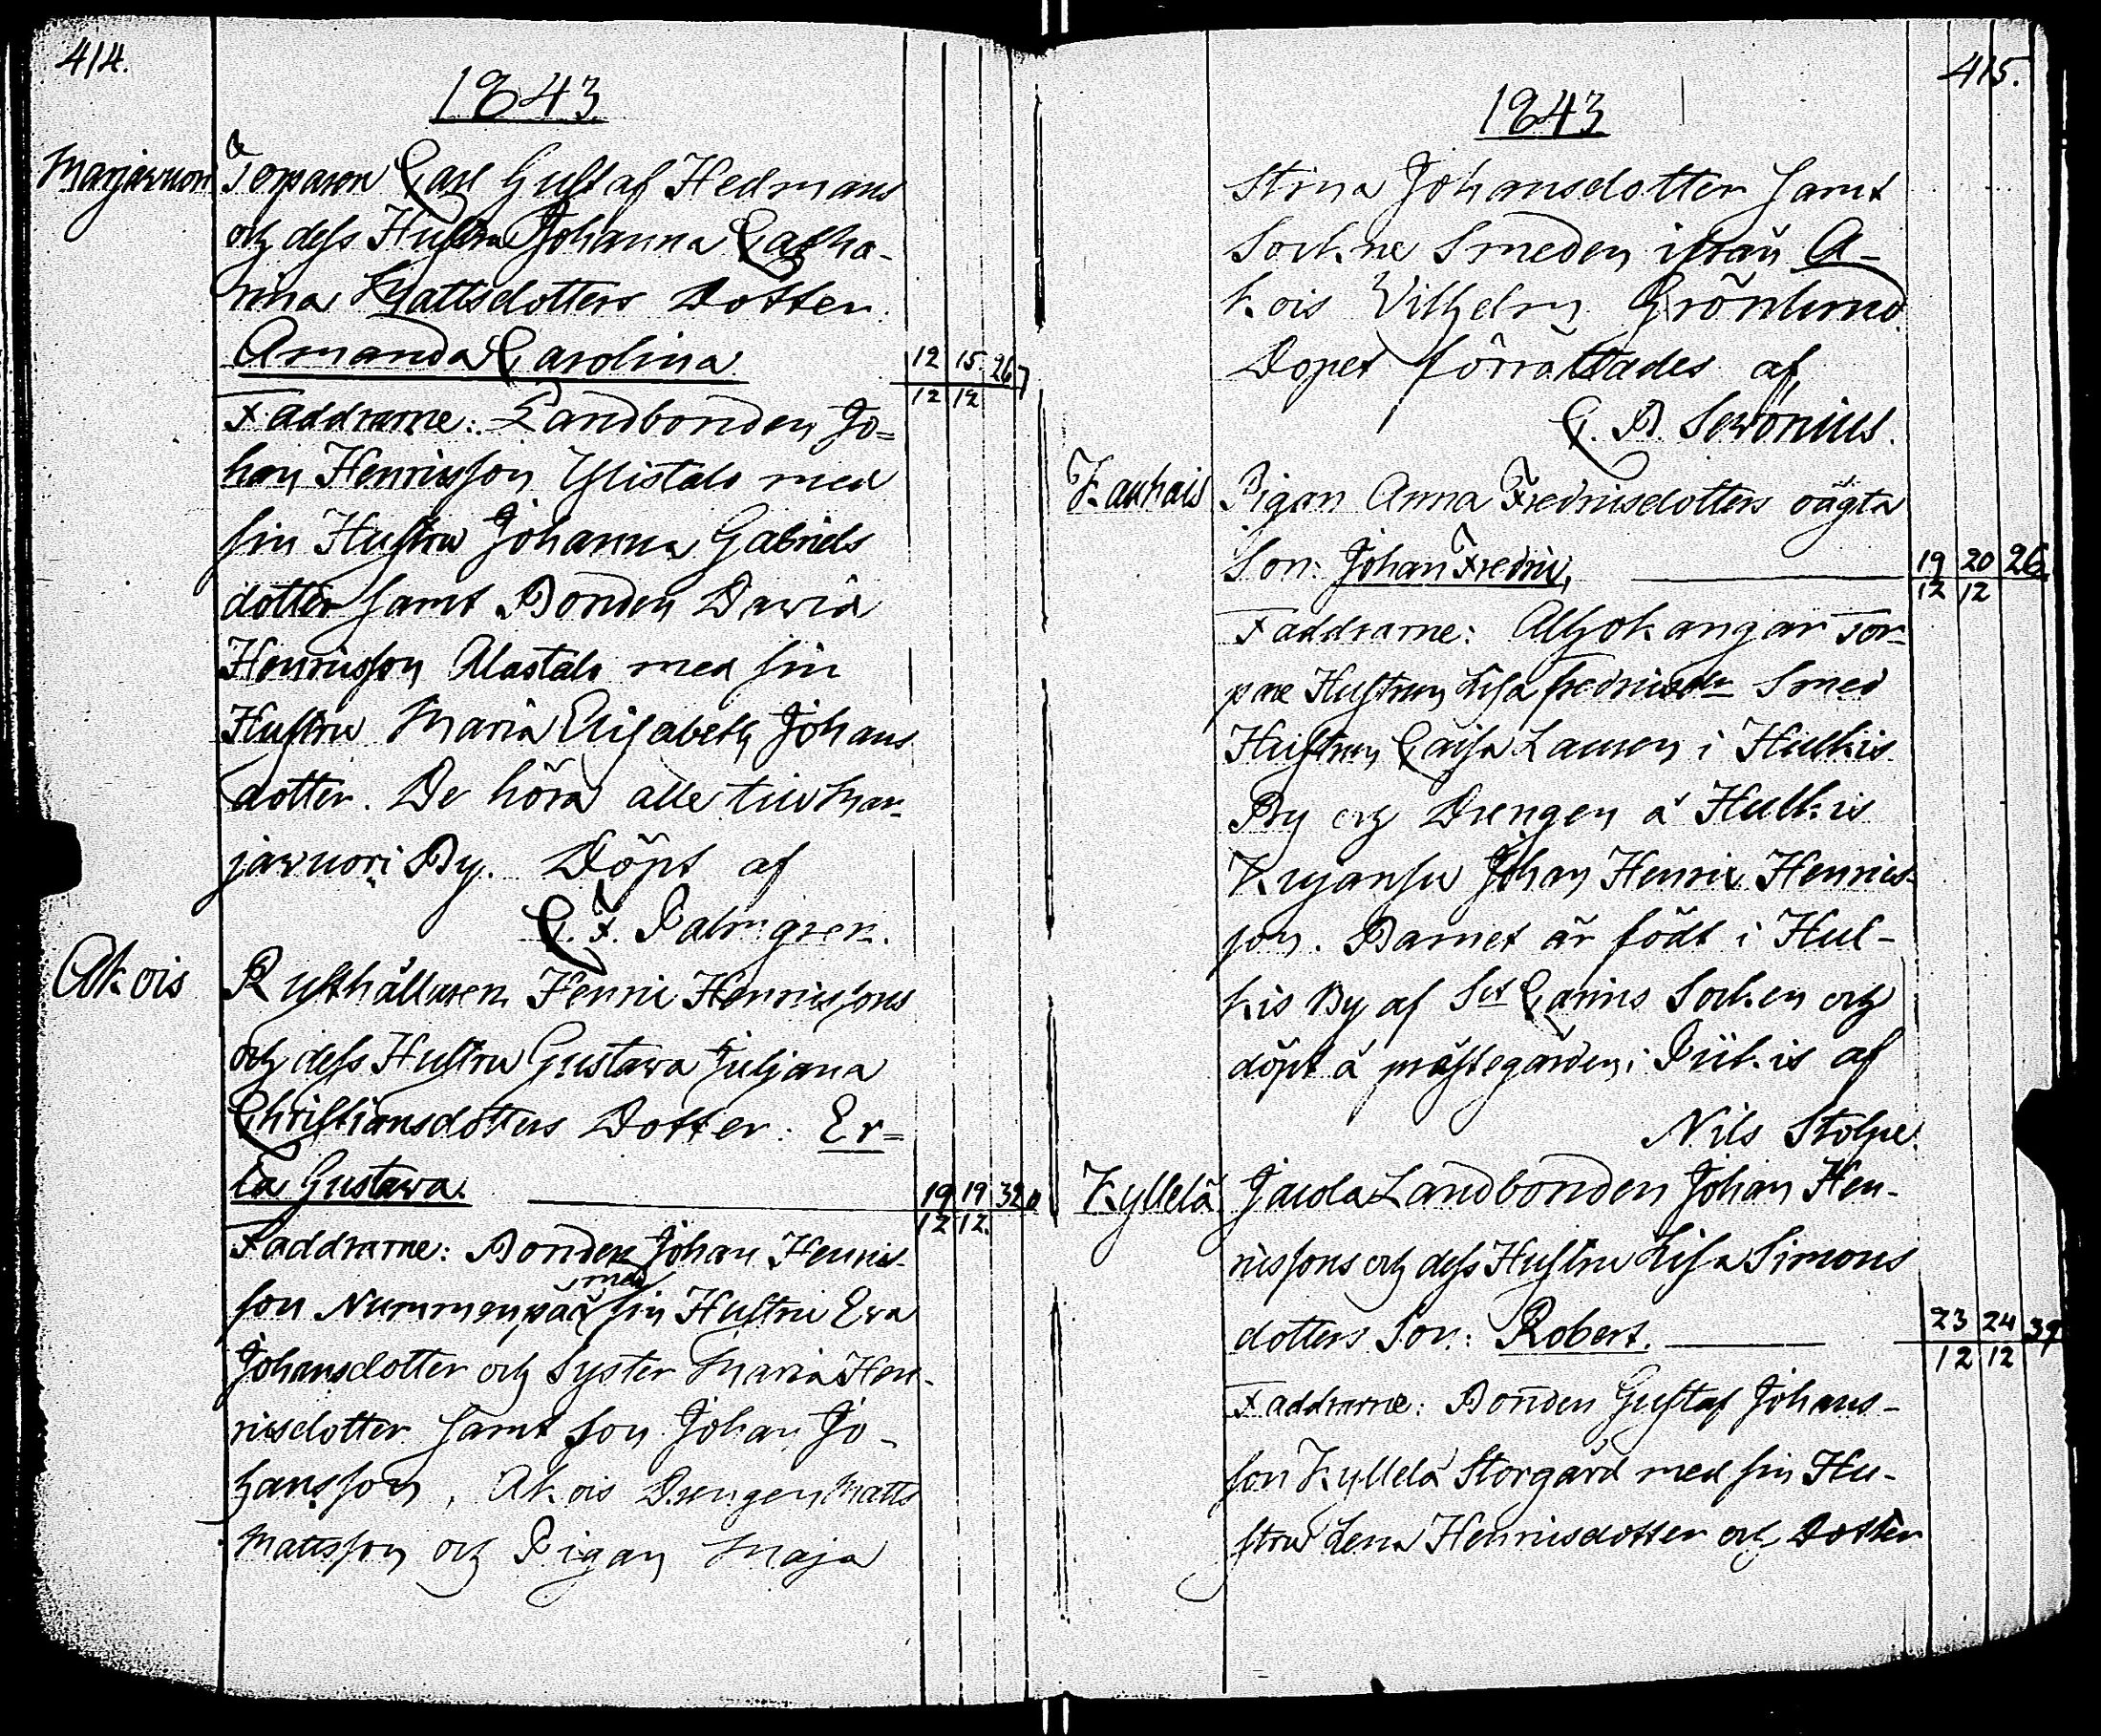 414.
1843
Marjawuori Torparen Carl Gustaf Hedmans
och dess Hustru Johanna Catha-
rina Mattsdotters Dotter.
Amanda Carolina 12 15. 26
12 12
Faddrarne: Landbonden Jo=
han Henricsson Ylistalo med
sin Hustru Johanna Gabriels
dotter samt Bonden David
Henricsson Alastalo med sin
Hustru Maria Elisabeth Johans
dotter. De höra alle till Mar-
jawuori By. Döpt af
C. F. Palmgren.
Akois Rusthållaren Henric Henricssons
och dess Hustru Gustava Juljana
Christiansdotters Dotter: Er=
la Gustava. 19 19 32
12 12.
Faddrarne: Bonden Johan Henric-
son Nummenpää med sin Hustru Eva
Johansdotter och Syster Maria Hen-
ricsdotter samt son Johan Jo-
hansson, Akois Drengen Matts
Mattsson och Pigan Maja
415.
1843
Stina Johansdotter samt
Sockne Smeden ifrån A-
kois Vilhelm Grönlund.
Dopet förrättades af
C. B. Serönius.
Kauhais Pigan Anna Fredricsdotters oägta
Son: Johan Fredric, 19 20 26
12 12
Faddrarne: Alhokangar Tor-
pare Hustrun Lisa Fredricsdr Smed
Hustrun Caisa Lauren i Hulkis
By och Drengen å Hulkis
Kujansu Johan Henric Henrics-
son. Barnet är födt i Hul-
kis By af Sct Carins Socken och
döpt å prästegården i Piikis af
Nils Stolpe.
Kyllelä Jacola Landbonden Johan Hen-
ricssons och dess Hustru Lisa Simons
dotters Son: Robert. 23 24 39
12 12
Faddrarne: Bonden Gustaf Johans-
son Kyllelä Storgård med sin Hu-
stru Lena Henricsdotter och Dotter